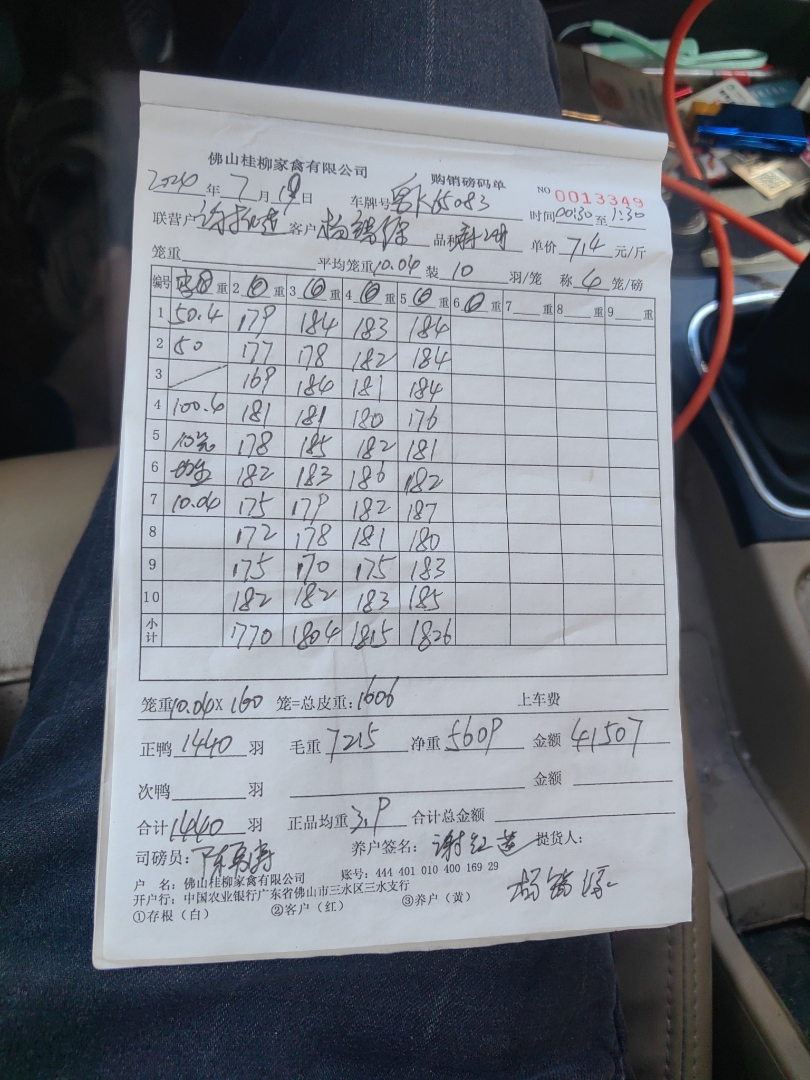 佛山桂柳家禽有限公司 购销磅码单 NO 0013349
2024年7月19日 车牌号粤K65083 时间00:30至1:30
联营户谢红莲 客户杨锦 品种 单价7.4元/斤
笼重 平均笼重10.04 装10羽/笼 称4笼/磅
编号 重 2 重 3 重 4 重 5 重 6 重 7 重 8 重 9 重
1 50.4 179 184 183 184
2 50 177 178 182 184
3 169 184 181 184
4 100.4 181 181 180 176
5 10笼 178 185 182 181
6 均重 182 183 186 182
7 10.04 175 179 182 187
8 172 178 181 180
9 175 170 175 183
10 182 182 183 185
小计 1770 1804 1815 1826
笼重10.04X160笼=总皮重:1606 上车费
正鸭1440羽 毛重7215 净重5609 金额41507
次鸭 羽 金额
合计1440羽 正品均重3.9 合计总金额
司磅员:陈 养户签名:谢红莲 提货人:
杨锦
户 名:佛山桂柳家禽有限公司 账号:444 401 010 400 169 29
开户行:中国农业银行广东省佛山市三水区三水支行
①存根(白) ②客户(红) ③养户(黄)